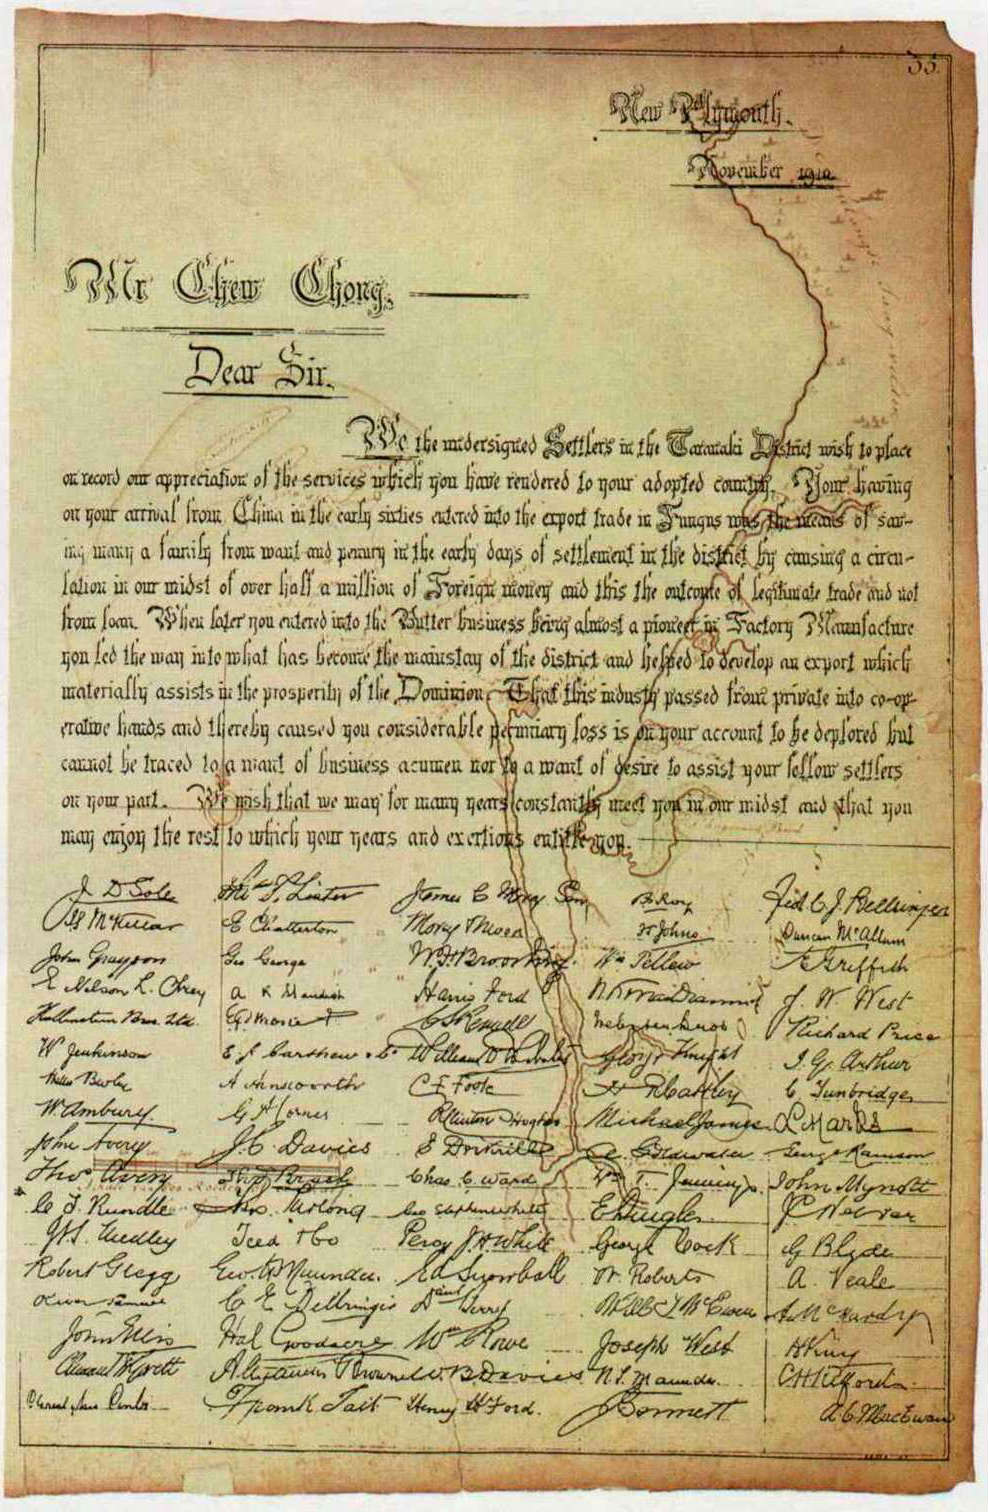 33
New Plymouth.
November 1910
Mr Chew Chong.
Dear Sir.
We the undersigned Settlers in the Taranaki District wish to place
on record our appreciation of the services which you have rendered to your adopted country. Your having
on your arrival from China in the early sixties entered into the export trade in Fungus was the means of sav-
ing many a family from want and penury in the early days of settlement in the district by causing a circu-
lation in our midst of over half a million of Foreign money and this the outcome of legitimate trade and not
from loan. When later you entered into the Butter business being almost a pioneer in Factory Manufacture
you led the way into what has become the mainstay of the district and helped to develop an export which
materially assists in the prosperity of the Dominion. That this industy passed from private into co-op-
erative hands and thereby caused you considerable pecuniary loss is on your account to be deplored but
cannot be traced to a want of business acumen nor to a want of desire to assist your fellow settlers
on your part. We wish that we may for many years constantly meet you in our midst and that you
may enjoy the rest to which your years and exertions entitle you.
J D Sole Thos S. Linter James C Fred C J Bellringer
McKellar E Chatterton Mary H Johns Duncan McAllum
John Grayson Geo George W.F. Brooking Wm Pellew Griffith
E Nelson L. A R Standish Harris Ford J. W. West
Bros. Ltd. Richard Price
W Jenkinson E. J Carthew & Co William George Knight J. G. Arthur
A Ainsworth C F Foote H R Cattley C Tunbridge
W. Ambury. G H Clinton Hughes Michael James L Marks
John Avery J. C. Davies E Driville Goldwater George Ramson
Thos Avery Chas C Ward Wm T. Jennings. John Mynott
C. J. Rundle Geo Stephen White E Dingle.
J H. Medley Teed & Co Percy J. H. White George Cock G Blyde
Robert Clegg Geo. H Maunder. Ed Snowball W Roberts A. Veale
Oliver Samuel C E Bellringer Berry McEwen McHardy
John Ellis Hal Goodacre Wm Rowe Joseph West H King
Brown W. B Davies N. L. Maunder. C H Stafford
Newton Frank Tait Henry H Ford. J Bennett A C MacEwan